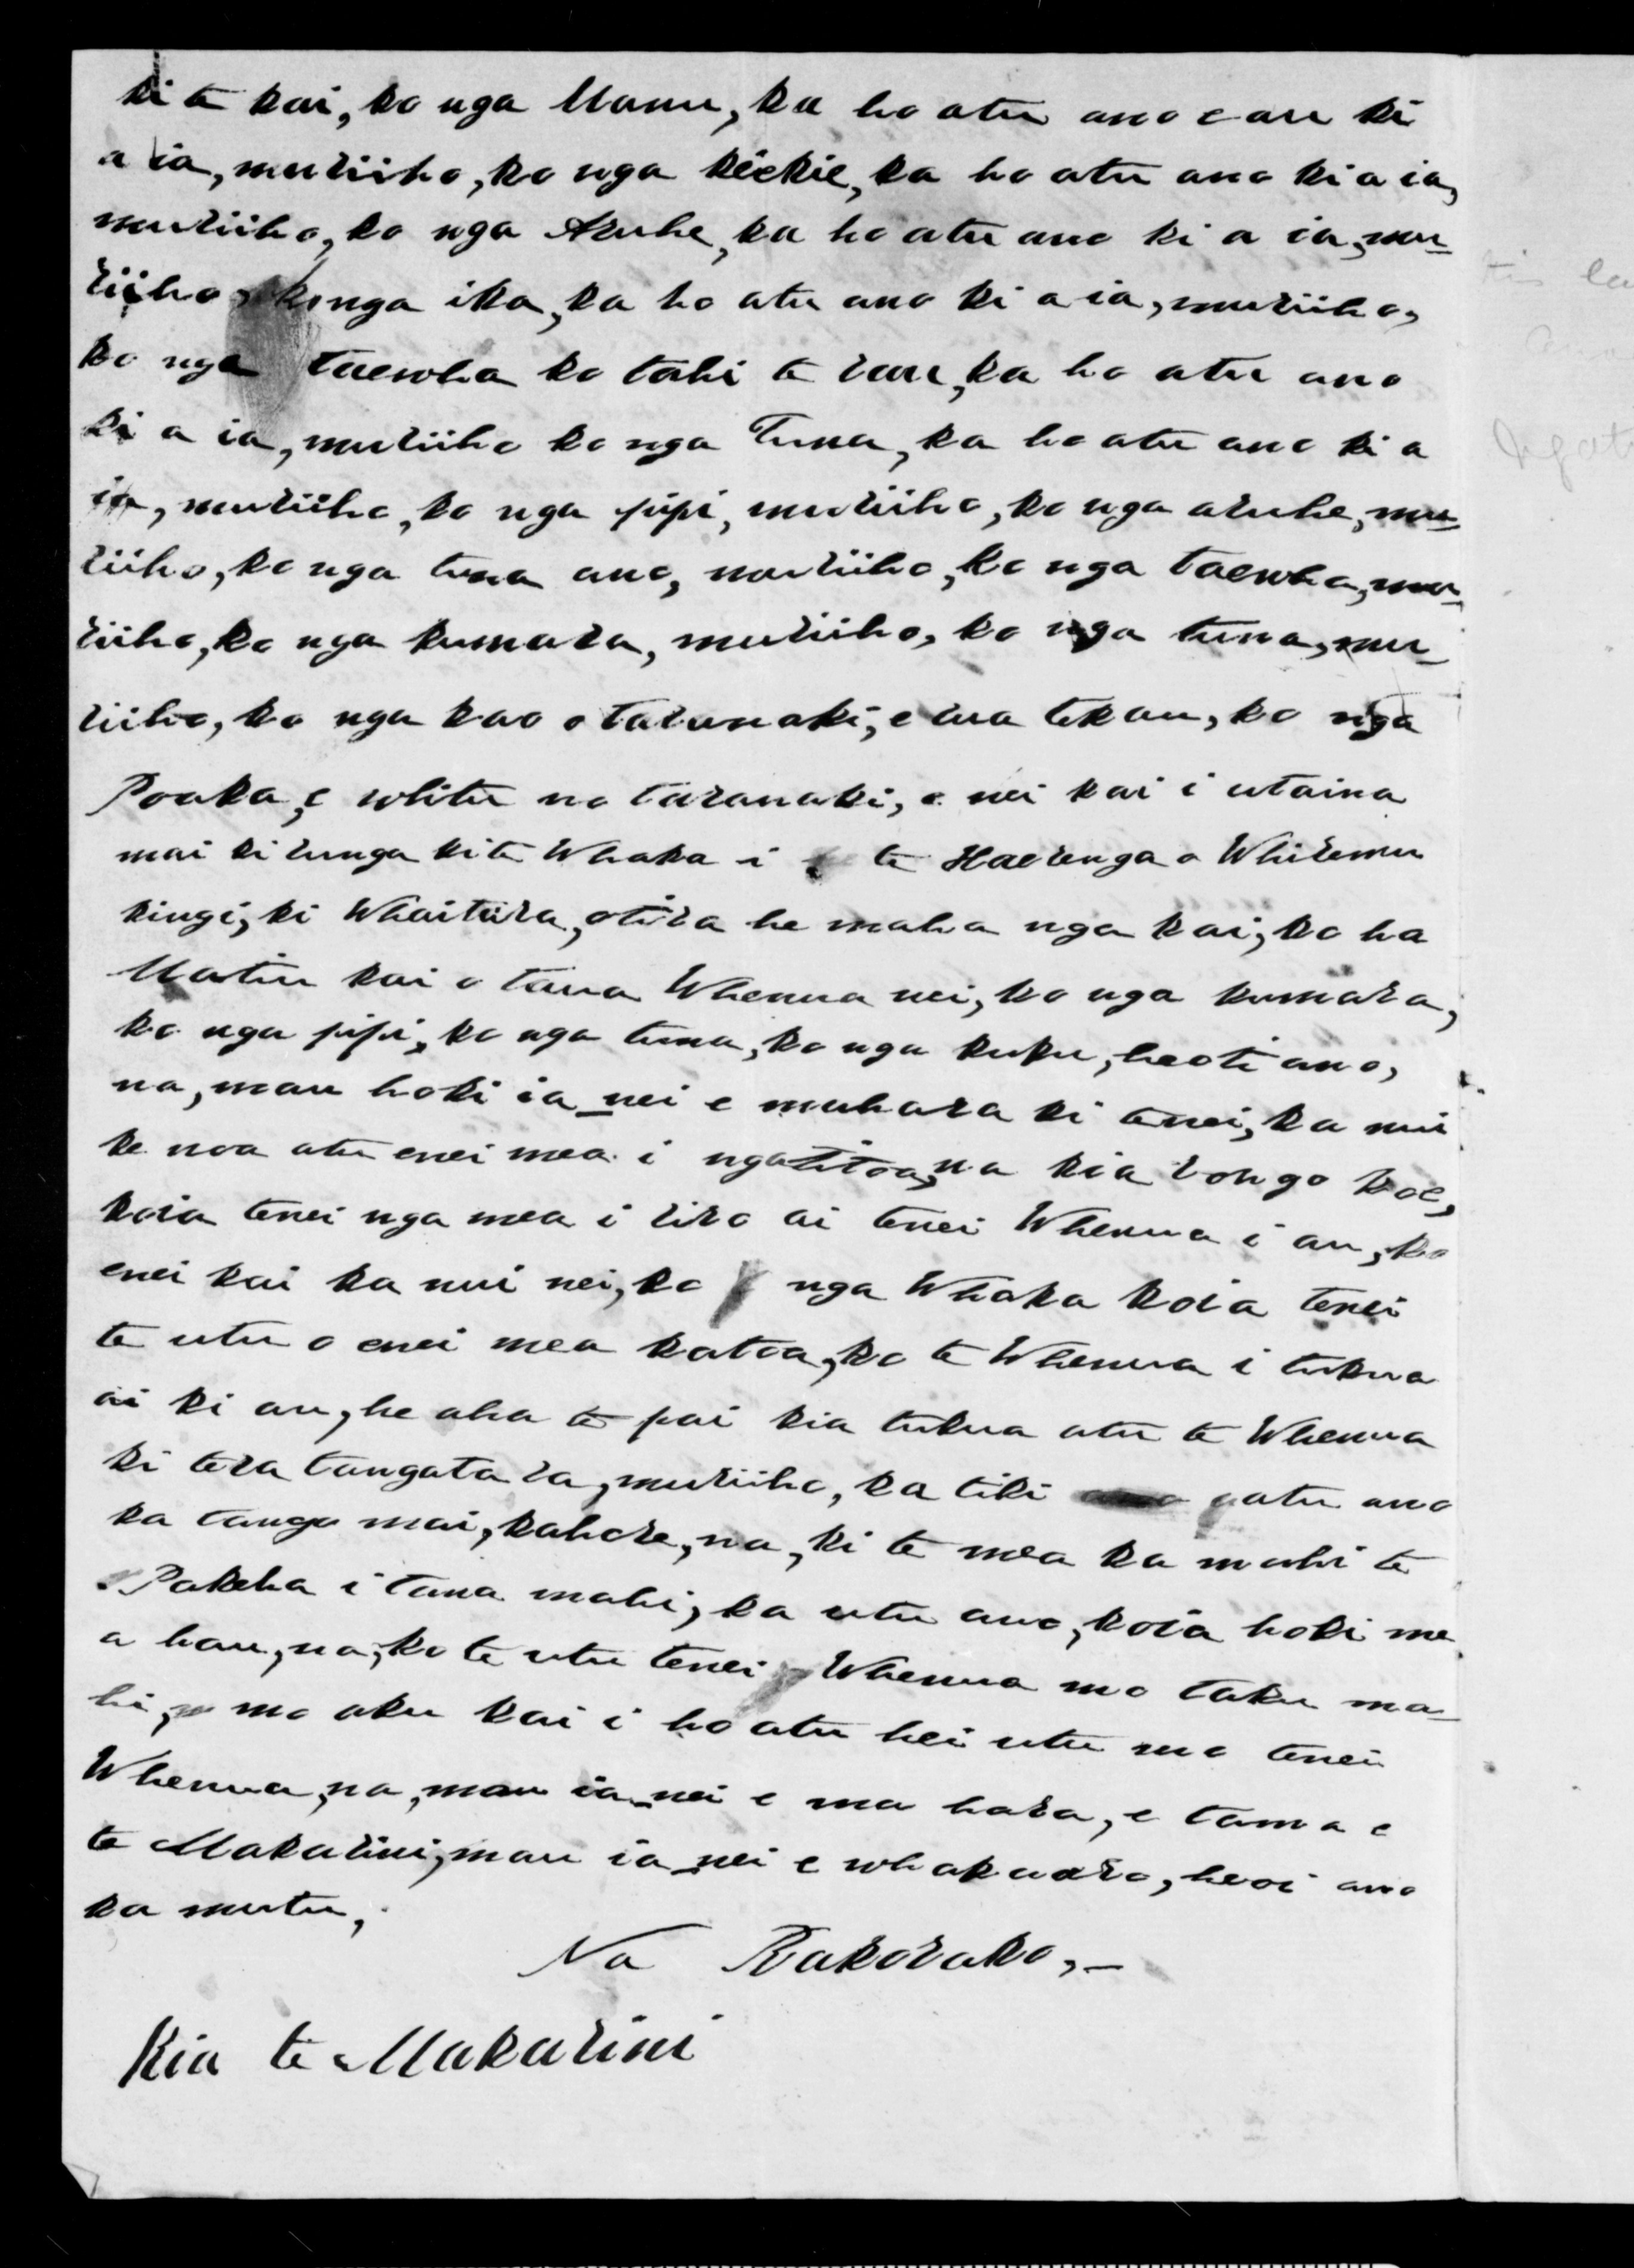 ki te kai, ko nga Manu, ka ho atu ano e au ki
a ia, muriiho, ko nga kiekie, ka ho atu ano ki a ia,
muriiho, ko nga Aruhe, ka ho atu ano ki a ia, mu-
riiho, ko nga ika, ka ho atu ano ki a ia, muriiho,
ko nga taewha ko tahi te rau, ka ho atu ano
ki a ia, muriiho ko nga Tuna, ka ho atu ano ki a
ia, muriiho, ko nga pipi, muriiho, ko nga aruhe, mu-
riiho, ko nga tuna ano, muriiho, ko nga taewha, mu-
riiho, ko nga kumara, muriiho, ko nga tuna, mu-
riiho, ko nga kao o taranaki, e rua tekau, ko nga
Poaka, e whitu no taranaki, e nei kai i utaina
mai ki runga ki te Whaka i te Haerenga o Whiremu
kingi, ki Whaitara, otira he maha nga kai, ko ha
Matu kai o taua Whenua nei, ko nga kumara,
ko nga pipi, ko nga tuna, ko nga kuku, heoti ano,
na, mau hoki ia_nei e mahara ki tenei, ka nui
ke noa atu enei mea i ngatitoa, na kia rongo koe,
koia tenei nga mea i riro ai tenei Whenua i au, ko
enei kai ka nui nei, ko nga Whaka koia tenei
te utu o enei mea katoa, ko te Whenua i tukua
ai ki au, he aha te pai kia tukua atu te Whenua
ki tera tangata ra, muriiho, ka tiki atu ano
ka tango mai, kahore, na, ki te mea ka mahi te
Pakeha i tana mahi, ka utu ano, koia hoki me
a hau, na, ko te utu tenei Whenua mo taku ma-
hi, mo aku kai i ho atu hei utu mo tenei
Whenua, na, mau ia_nei e ma hara, e tama e
te Makarini, mau ia_nei e whakaaro, heoi ano
ka mutu,
Na Rakorako,-
Kia te Makarini